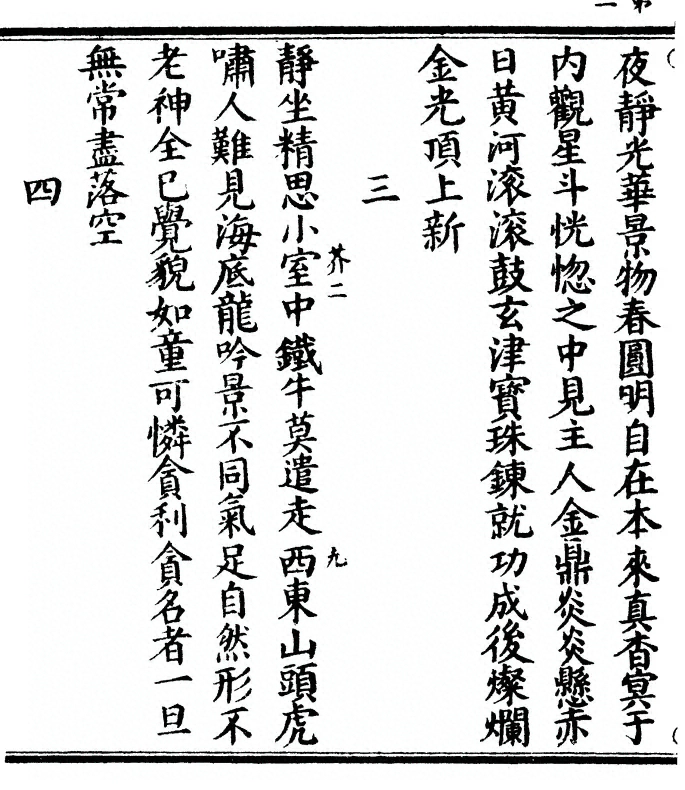 夜靜光華景物春圓明自在本來真杳冥于
内觀星斗恍惚之中見主人金鼎炎炎懸赤
日黄河滚滚鼓玄津寶珠鍊就功成後燦爛
金光頂上新
三
芥二
九
靜坐精思小室中鐵牛莫遣走西東山頭虎
嘯人難見海底龍吟景不同氣足自然形不
老神全已覺貌如童可憐貪利貪名者一旦
無常盡落空
四